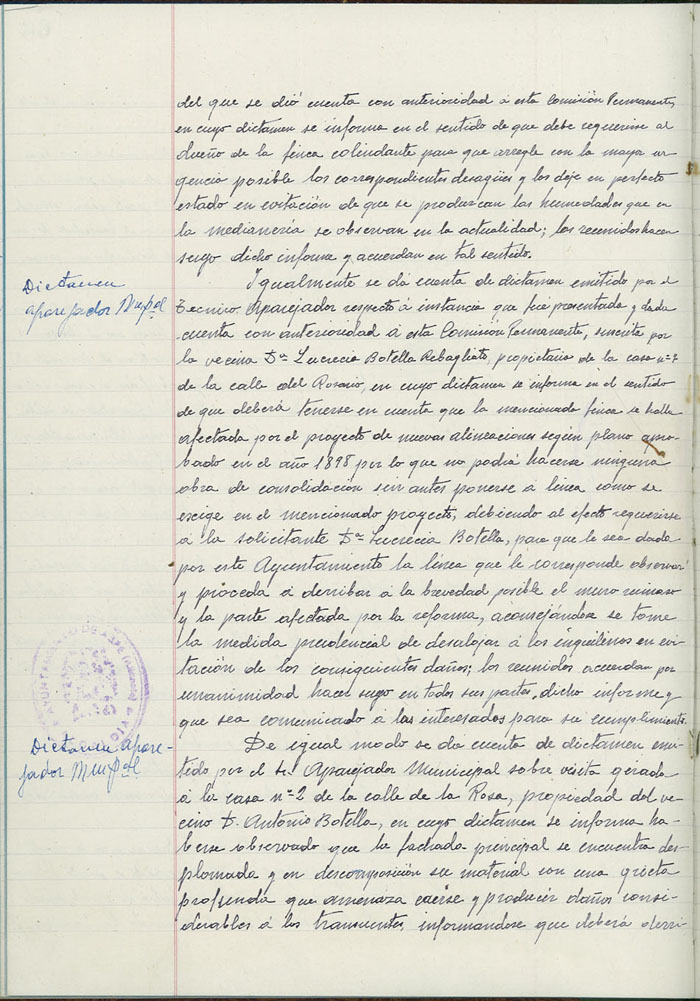 del que se dió cuenta con anterioridad á esta Comisión Permanente,
en cuyo dictamen se informa en el sentido de que debe requerirse al
dueño de la finca colindante para que arregle con la maya ur
gencia posible los correspondientes desagües y los deje en perfecto
estado en evitación de que se produzcan las humedades que en
la medianería se observan en la actualidad; los reunidos hacen
suyo dicho informe y acuerdan en tal sentido.
Dictamen
aparejador Munpal
Igualmente se dá cuenta de dictamen emitido por el
Tecnico Aparejador respecto á instancia que fué presentada y dada
cuenta con anterioridad á esta Comisión Permanente, suscrita por
la vecina Dª Lucrecia Botella Rebagliato, propietaria de la casa nº 7
de la calle del Rosario, en cuyo dictamen se informa en el sentido
de que deberá tenerse en cuenta que la mencionada finca se halla
afectada por el proyecto de nuevas alineaciones según plano apro-
bado en el año 1898 por lo que no podrá hacerse ninguna
obra de consolidación sin antes ponerse á linea como se
exige en el mencionado proyecto, debiendo al efecto requerirse
á la solicitante Dª Lucrecia Botella, para que le sea dada
por este Ayuntamiento la línea que le corresponde observar
y proceda á derribar á la brevedad posible el muro ruinoso
y la parte afectada por la reforma, aconsejándose se tome
la medida prudencial de desalojar á los inquilinos en evi
tación de los consiguientes daños; los reunidos acuerdan por
unanimidad hacer suyo en todas sus partes, dicho informe y
que sea comunicado á las interesados para su cumplimiento.
AYUNTAMIENTO DE ASPE
Dictamen apare-
jador Munpal
De igual modo se da cuenta de dictamen emi-
tido por el Sr. Aparejador Municipal sobre visita girada
á la casa nº 2 de la calle de la Rosa, propiedad del ve-
cino D. Antonio Botella, en cuyo dictamen se informa ha-
berse observado que la fachada principal se encuentra des-
plomada y en descomposición su material con una grieta
profunda que amenaza caerse y producir daños consi-
derables á los transeuntes, informandose que deberá derri-